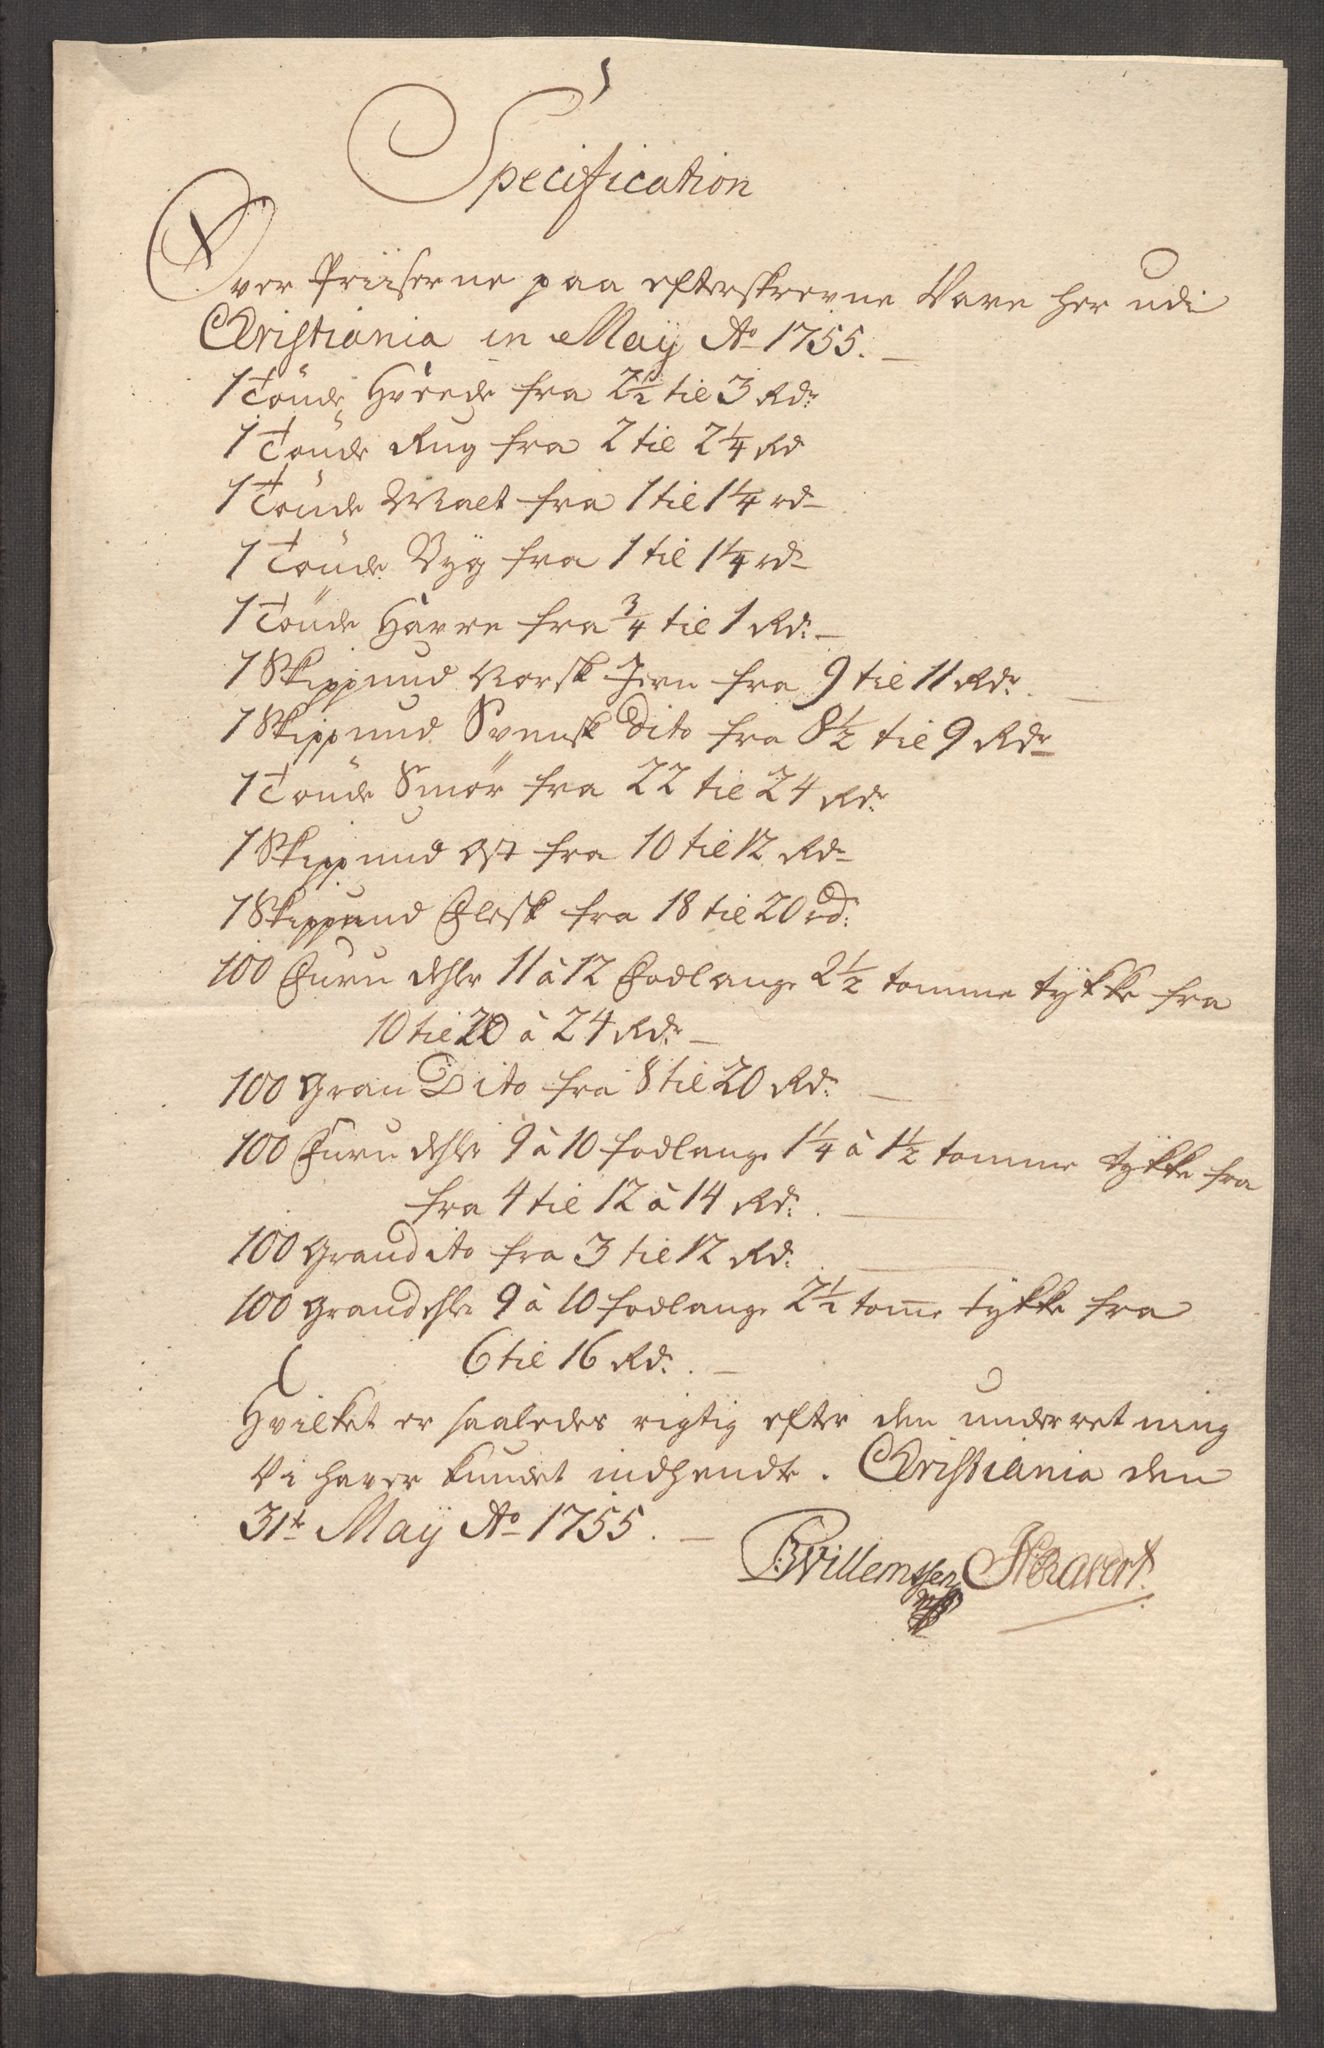 Specification
Over Priiserne paa efterskrevne Vare her udi
Christiania in Maÿ Ao 1755.
1 Tönde Hvede fra 2½ til 3 Rdr
1 Tönde Rug fra 2 til 2¼ Rd
1 Tönde Malt fra 1 til 1¼ rd
1 Tönde Byg fra 1 til 1¼ rdr
1 Tönde Havre fra ¾ til 1 Rdr.
1 Skippund Norsk Jern fra 9 til 11 Rdr.
1 Skippund Svensk Dito fra 8½ til 9 Rdr
1 Tönde Smör fra 22 til 24 Rdr
1 Skippund Ost fra 10 til 12 Rdr
1 Skippund Flesk fra 18 til 20 rd:
100 Furu dehler 11 à 12 Fodlange 2½ tomme tykke fra
10 til 20 à 24 Rdr
100 Gran Dito fra 8 til 20 Rdr.
100 Furu dehler 9 à 10 fodlange 1¼ à 1½ tomme tÿkke fra
fra 4 til 12 à 14 Rdr.
100 Gran dito fra 3 til 12 Rdr.
100 Gran dehler 9 à 10 fodlange 2½ tomme tÿkke fra
6 til 16 Rdr.
Hvilket er saaledes rigtig efter den underretning
Vi haver kundet indhendte. Christiania den
31te Maÿ Ao 1755.
Willemssen